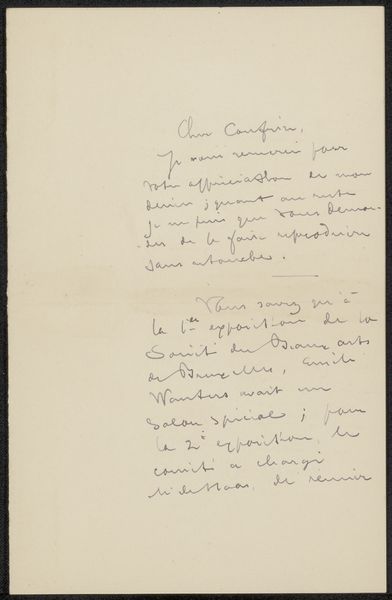 Cher Confrère,
Je vous remercie pour
votre appréciation de mon
dessin ; quant au reste
je ne puis que vous deman-
der de le faire reproduire
sans retouches.
Vous savez qu'à
la 1ère exposition de la
Société des Beaux arts
de Bruxelles, Emile
Wauters avait un
Salon spécial ; pour
la 2e exposition, le
comité a chargé
M. de Haas, de réunir